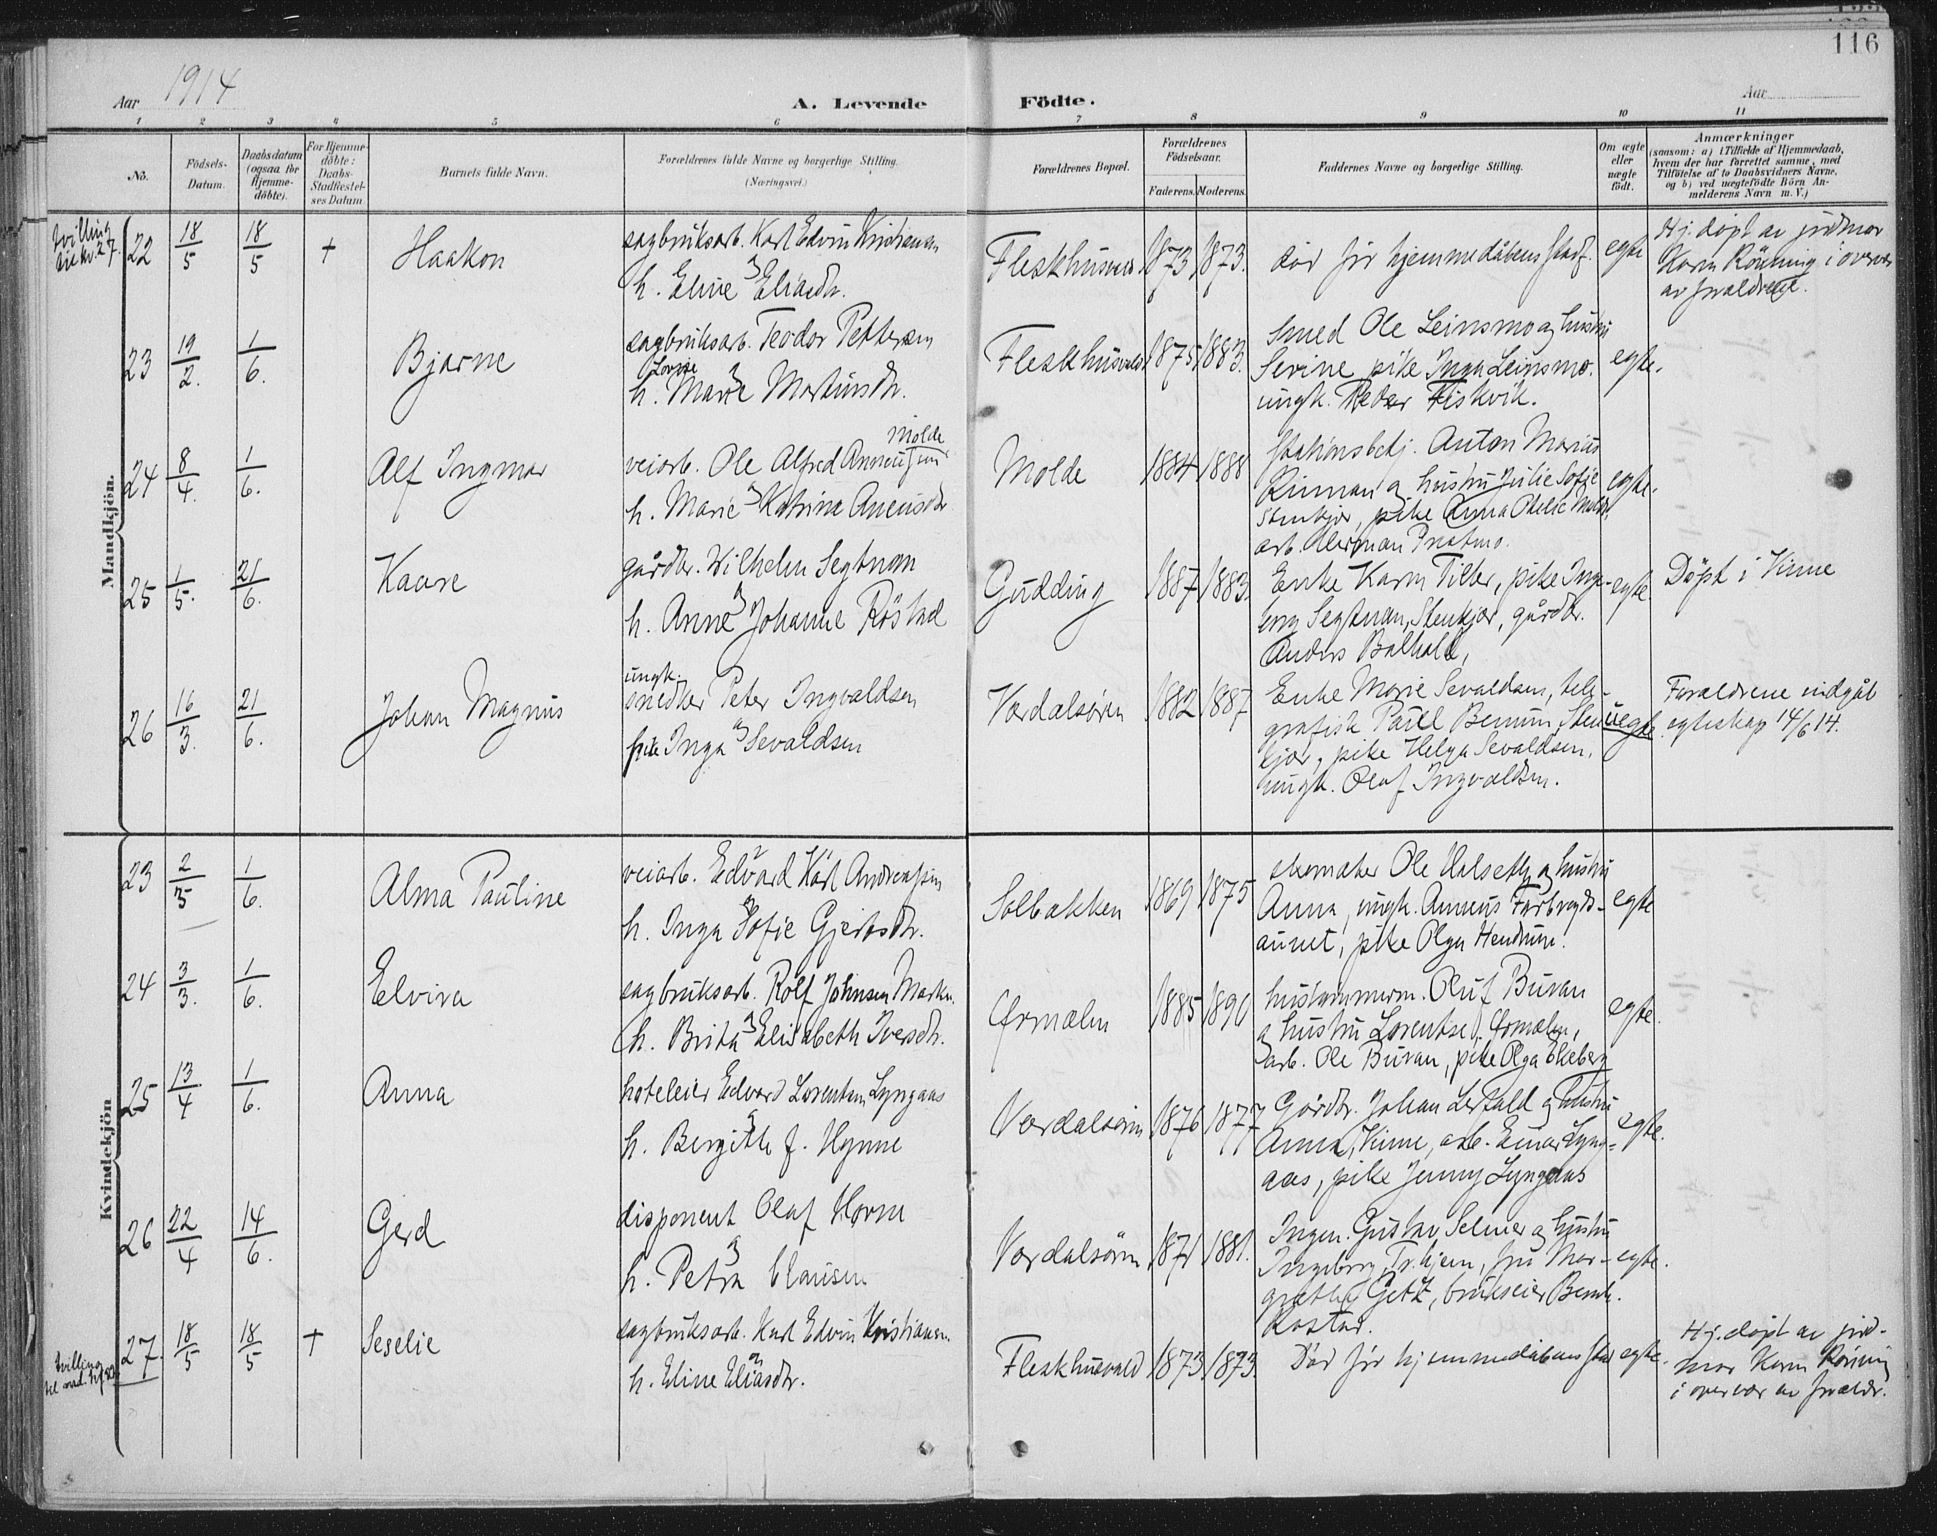 116
Aar 1914
A. Levende Födte.
Aar
1 2 3 4 5 6 7 8 9 10 11
No.
Födsels-
Datum.
Daabsdatum
(ogsaa for
Hjemme-
döbte).
For Hjemme-
döbte:
Daabs-
Stadfæstel-
ses Datum.
Barnets fulde Navn.
Forældrenes fulde Navne og borgerlige Stilling.
(Næringsvei.)
Forældrenes Bopæl.
Forældrenes
Födselsaar.
Faderens. Moderens.
Faddernes Navne og borgerlige Stilling.
Om ægte
eller
uægte
födt.
Anmærkninger
(saasom: a) i Tilfælde af Hjemmedaab,
hvem der har forrettet samme, med
Tilföielse af to Daabsvidners Navne,
og b) ved uægtefödte Börn An-
melderens Navn m. V.)
Mandkjön.
tvilling
22 18/5 18/5 + Haakon
sagbruksarb. Karl Edvin Kristiansen
h. Eline Eliasdr.
1873 1873.
død før hjemmedåbens stadf.
egte
Hj. døpt av jordmor
Karen Rönning i overvær
av foreldrene.
23 19/2. 1/6. Bjarne
sagbruksarb. Teodor Pettersen
Lovise
h. Marie Martinsdr.
Fleskhusvald 1875 1883.
Smed Ole Leinsmo og hustru
Serine, pike Inga Leinsmo.
ungk. Peder Fiskvik.
egte.
24 8/4. 1/6. Alf Ingmar
Molde
veiarb. Ole Alfred
h. Marie Katrine
Molde 1884 1888
Stationsbetj. Anton Marius
Rinnan og hustru Julie Sofie
Stenkjær, pike Anna
arb. Herman
egte.
25 1/5. 21/6. Kaare
gårdbr. Wilhelm Segtnan
h. Anne Johanne Röstad
Gudding 1887 1883.
Enke Karen Tiller, pike Inge-
borg Segtnan, Stenkjær, gårdbr.
Anders Balhald,
egte.
Döpt i Vinne
26 16/3. 21/6. Johan Magnus
ungk.
snedker Peter Ingvaldsen
pike Inga Sevaldsen
Værdalsören 1882 1887
Enke Marie Sevaldsen, tele-
grafist Paull Benum, Sten-
kjær, pike Helga Sevaldsen,
ungk. Olaf Ingvaldsen.
uegte.
Forældrene indgåt
egteskap 14/6 14.
Kvindekjön
23 2/3 1/6. Alma Pauline
veiarb. Edvard Karl Andreassen
h. Inga Sofie Gjertsdr.
Solbakken 1869 1875
skomaker Ole Halseth og hustru
Anna, ungk. Anneus Forbregds-
aunet, pike Olga
egte
24 3/3. 1/6. Elvira
sagbruksarb. Rolf Johnsen
h. Brita Elisabeth Iversdr.
Ørmælen 1885 1890
hustømmerm. Oluf Buran
og hustru Lorentse, Ørmælen,
arb. Ole Buran, pike Olga Ekeberg
egte.
25 13/4 1/6. Anna
hoteleier Edvard Lorentsen Lyngaas
h. Bergitte f. Hynne
Værdalsören 1876 1877
Gårdbr. Johan Lerfald og hustru
Anna, Vinne, arb. Einar Lyng-
aas, pike Jenny Lyngaas
egte.
26 22/4 14/6. Gerd
disponent Olaf
h. Petra Clausen
Værdalsören 1871 1881.
Ingen. Gustav Selmer og hustru
Ingeborg, Tr.hjem, fru Mar-
grethe Getz, brukseier Bernh.
Rostad.
egte.
tvilling
27 18/5 18/5 + Seselie
sagbruksarb. Karl Edvin Kristiansen.
h. Eline Eliasdr.
Fleskhusvald 1873 1873.
Død før hjemmedåbens stad
egte.
Hj. døpt av jord-
mor Karen Rönning
i overvær av foreldr.